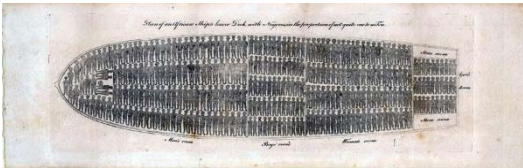 Plan of an African Ship's lower Deck, with Negroes in the proportion of not quite one to a Ton.
Store room
room
Store room
Men's room
Boys room
Womens room